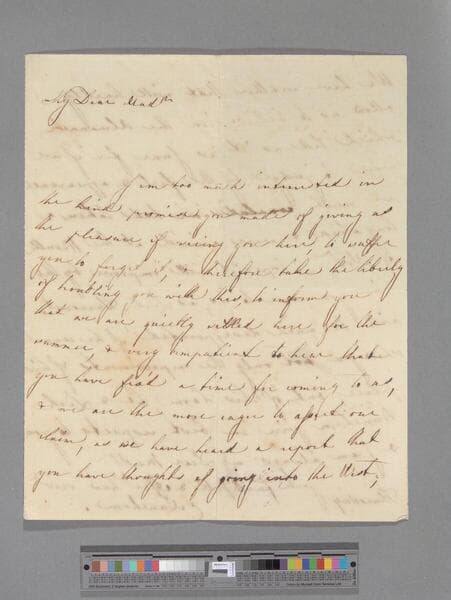 My Dear Mad.m
I am too much interested in
the kind promise you made of giving us
the pleasure of seeing you here, to suffer
you to forget it, & therefore take the liberty
of troubling you with this, to inform you
that we are quietly settled here for the
summer, & very impatient to hear that
you have fix'd a time for coming to us,
& we are the more eager to assert our
claim, as we have heard a report that
you have thoughts of going into the West,